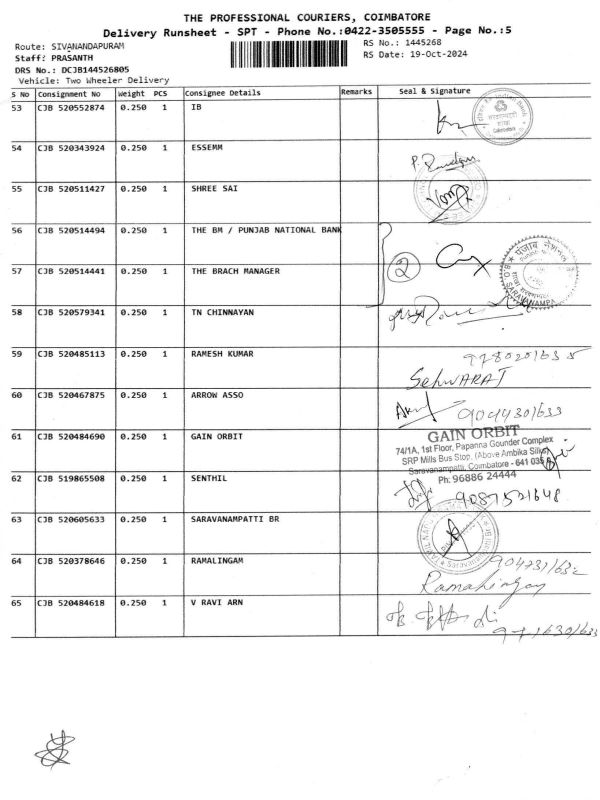 THE PROFESSIONAL COURIERS, COIMBATORE
Delivery Runsheet - SPT - Phone No.:0422-3505555 - Page No.:5
Route: SIVANANDAPURAM
RS No.: 1445268
Staff: PRASANTH
RS Date: 19-Oct-2024
DRS No.: DCJB144526805
Vehicle: Two Wheeler Delivery
S No Consignment No Weight PCS Consignee Details Remarks Seal & Signature
53 CJB 520552874 0.250 1 IB
54 CJB 520343924 0.250 1 ESSEMM
55 CJB 520511427 0.250 1 SHREE SAI
56 CJB 520514494 0.250 1 THE BM / PUNJAB NATIONAL BANK
2
57 CJB 520514441 0.250 1 THE BRACH MANAGER
58 CJB 520579341 0.250 1 TN CHINNAYAN
59 CJB 520485113 0.250 1 RAMESH KUMAR
60 CJB 520467875 0.250 1 ARROW ASSO
61 CJB 520484690 0.250 1 GAIN ORBIT
GAIN ORBIT
74/1A, 1st Floor, Papanna Gounder Complex
SRP Mills Bus Stop, (Above Ambika Silks)
Saravanampatti, Coimbatore - 641 035
Ph: 96886 24444
62 CJB 519865508 0.250 1 SENTHIL
63 CJB 520605633 0.250 1 SARAVANAMPATTI BR
64 CJB 520378646 0.250 1 RAMALINGAM
65 CJB 520484618 0.250 1 V RAVI ARN